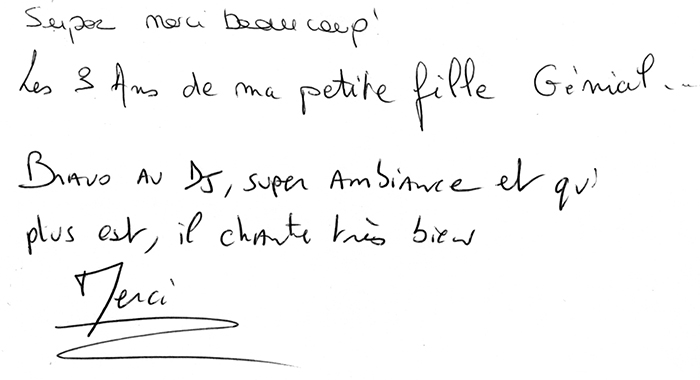 Super merci beaucoup!
Les 3 Ans de ma petite fille Génial...
Bravo au DJ, super Ambiance et qui
plus est, il chante très bien
Merci